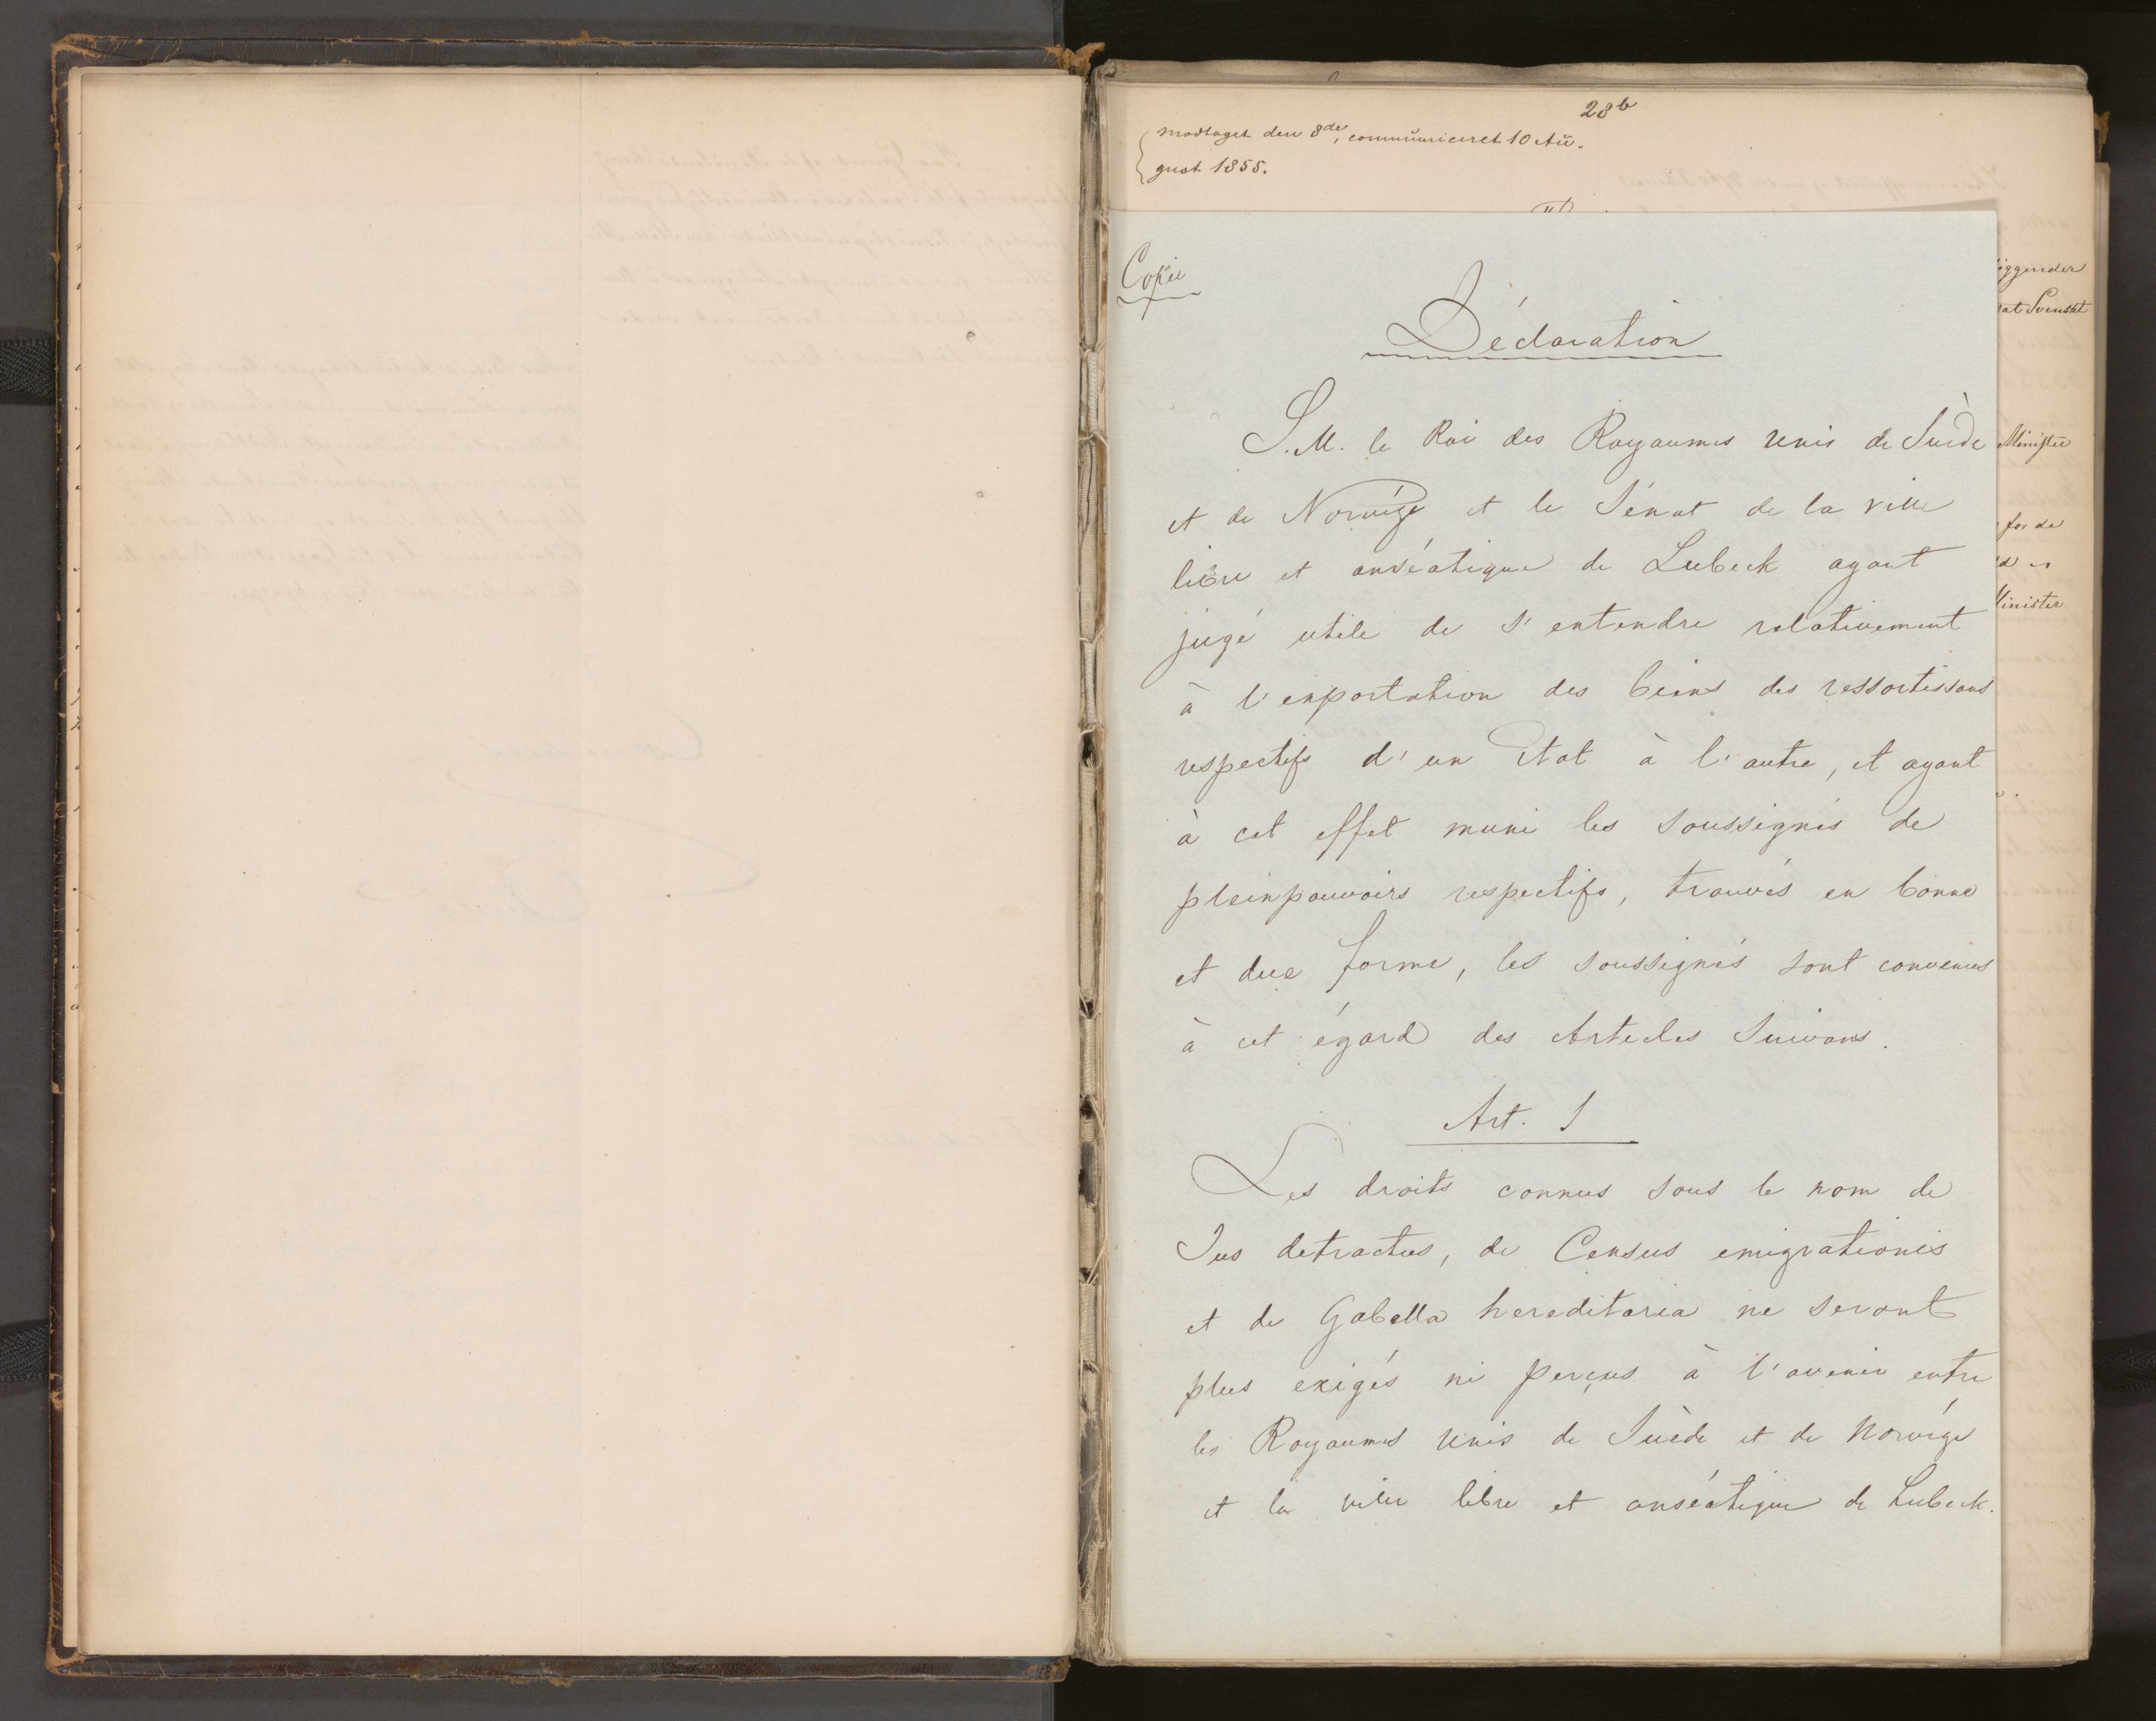 28b
modtaget den 8de, communiceret 10 Au-
gust 1855.
Copie
Déclaration
S. M. le Roi des Royaumes Unis de Suède
et de Norvége et le Sénat de la ville
libre et anséatique de Lubeck ayant
jugé utile de s'entendre relativement
à l'exportation des biens des ressortissans
respectifs d'un Etat à l'autre, et ayant
à cet effet muni les soussignés de
pleinpouvoirs respectifs, trouvés en bonne
et due forme, les soussignés sont convenus
à cet égard des Articles suivans.
Art. 1
Les droits connus sous le nom de
Jus detractus, de Census emigrationis
et de Gabella hereditaria ne seront
plus exigés ni perçus à l'avenir entre
les Royaumes Unis de Suède et de Norvége
et la ville libre et anséatique de Lubeck.
iggender
at Svenskt
Ministre
for de
Minister